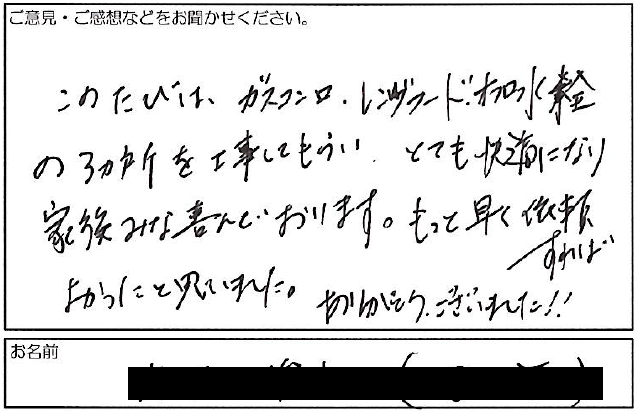 ご意見・ご感想などをお聞かせください。
このたびは、ガスコンロ・レンジフード・オフロ水栓
の3カ所を工事してもらい、とても快適になり
家族みな喜んでおります。もっと早く依頼
すれば
よかったと思いました。ありがとうございました!!
お名前